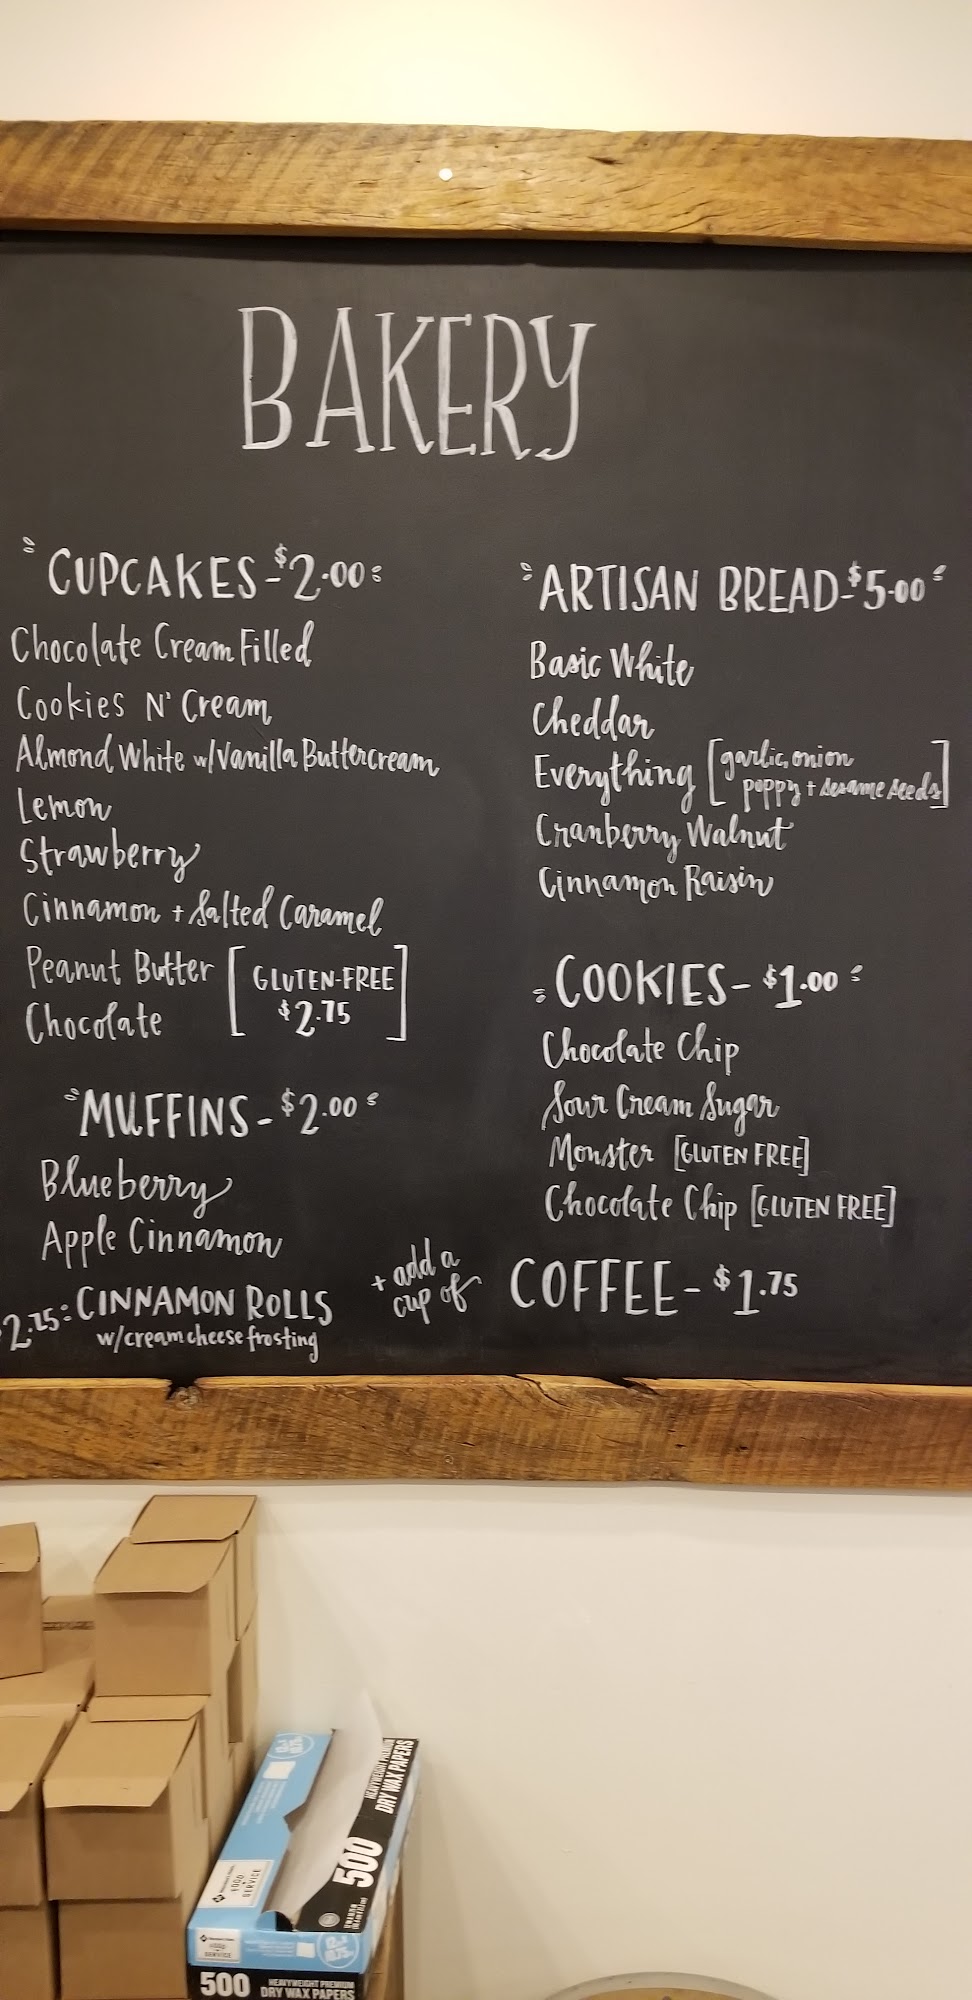 BAKERY
CUPCAKES-$2.00
Chocolate Cream Filled
Cookies N' Cream
Almond White w/Vanilla Buttercream
Lemon
Strawberry
Cinnamon + Salted Caramel
Peanut Butter
Chocolate
[GLUTEN-FREE
$2.75]
MUFFINS-$2.00
Blueberry
Apple Cinnamon
2.75: CINNAMON ROLLS
w/cream cheese frosting
ARTISAN BREAD-$5.00
Basic White
Cheddar
Everything [garlic, onion
poppy + sesame seeds]
Cranberry Walnut
Cinnamon Raisin
COOKIES-$1.00
Chocolate Chip
Sour Cream Sugar
Monster [GLUTEN FREE]
Chocolate Chip [GLUTEN FREE]
+ add a
cup of
COFFEE-$1.75
HEAVYWEIGHT PREMIUM
DRY WAX PAPERS
500
FOOD
SERVICE
SERVICE
500
HEAVYWEIGHT PREMIUM
DRY WAX PAPERS